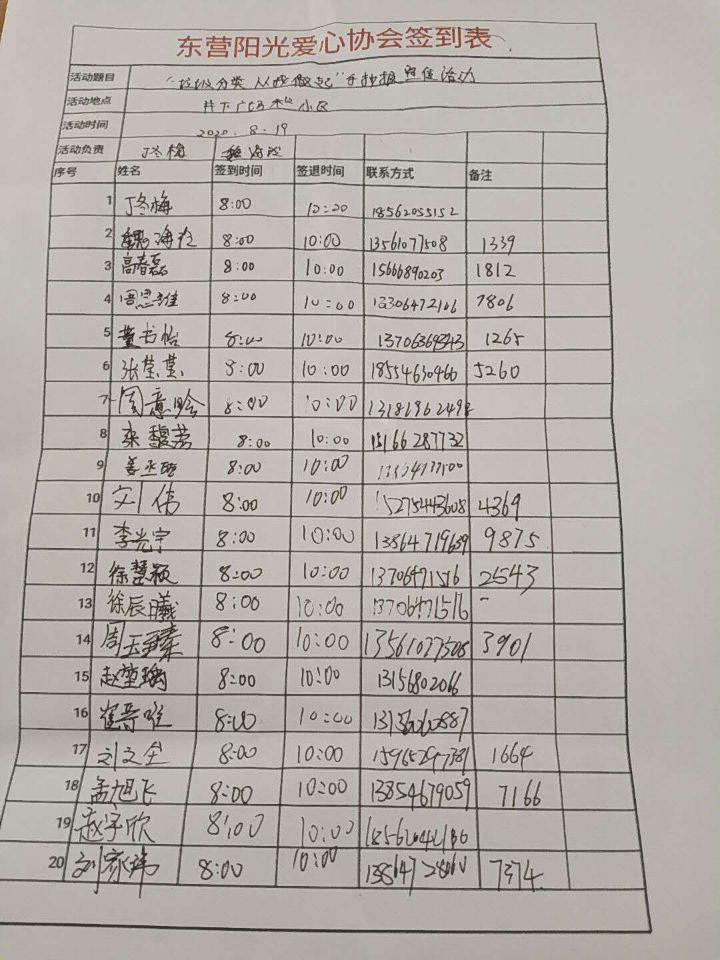 东营阳光爱心协会签到表
活动题目 "垃圾分类 从我做起"手抄报宣传活动
活动地点 井下广场 小区
活动时间 2020.8.19
活动负责 丁冬梅
序号 姓名 签到时间 签退时间 联系方式 备注
1 丁冬梅 8:00 10:20 18562055152
2 8:00 10:00 13561077508 1339
3 高春磊 8:00 10:00 15666890203 1812
4 周思维 8:00 10:00 13306472106 7806
5 董书怡 8:00 10:00 13706369343 1265
6 张莹莹 8:00 10:00 18554630466 5260
7 周意晗 8:00 10:00
8 8:00 10:00 15166287732
9 8:00 10:00
10 刘伟 8:00 10:00 15275443608 4369
11 李光宇 8:00 10:00 13864719659 9875
12 徐慧颖 8:00 10:00 13706471516 2543
13 徐辰曦 8:00 10:00 13706471516 -
14 8:00 10:00 13561077508 3901
15 8:00 10:00 13156802066
16 8:00 10:00
17 刘文全 8:00 10:00 1664
18 孟旭飞 8:00 10:00 13854679059 7166
19 赵宇欣 8:00 10:00
20 刘家玮 8:00 10:00 7374